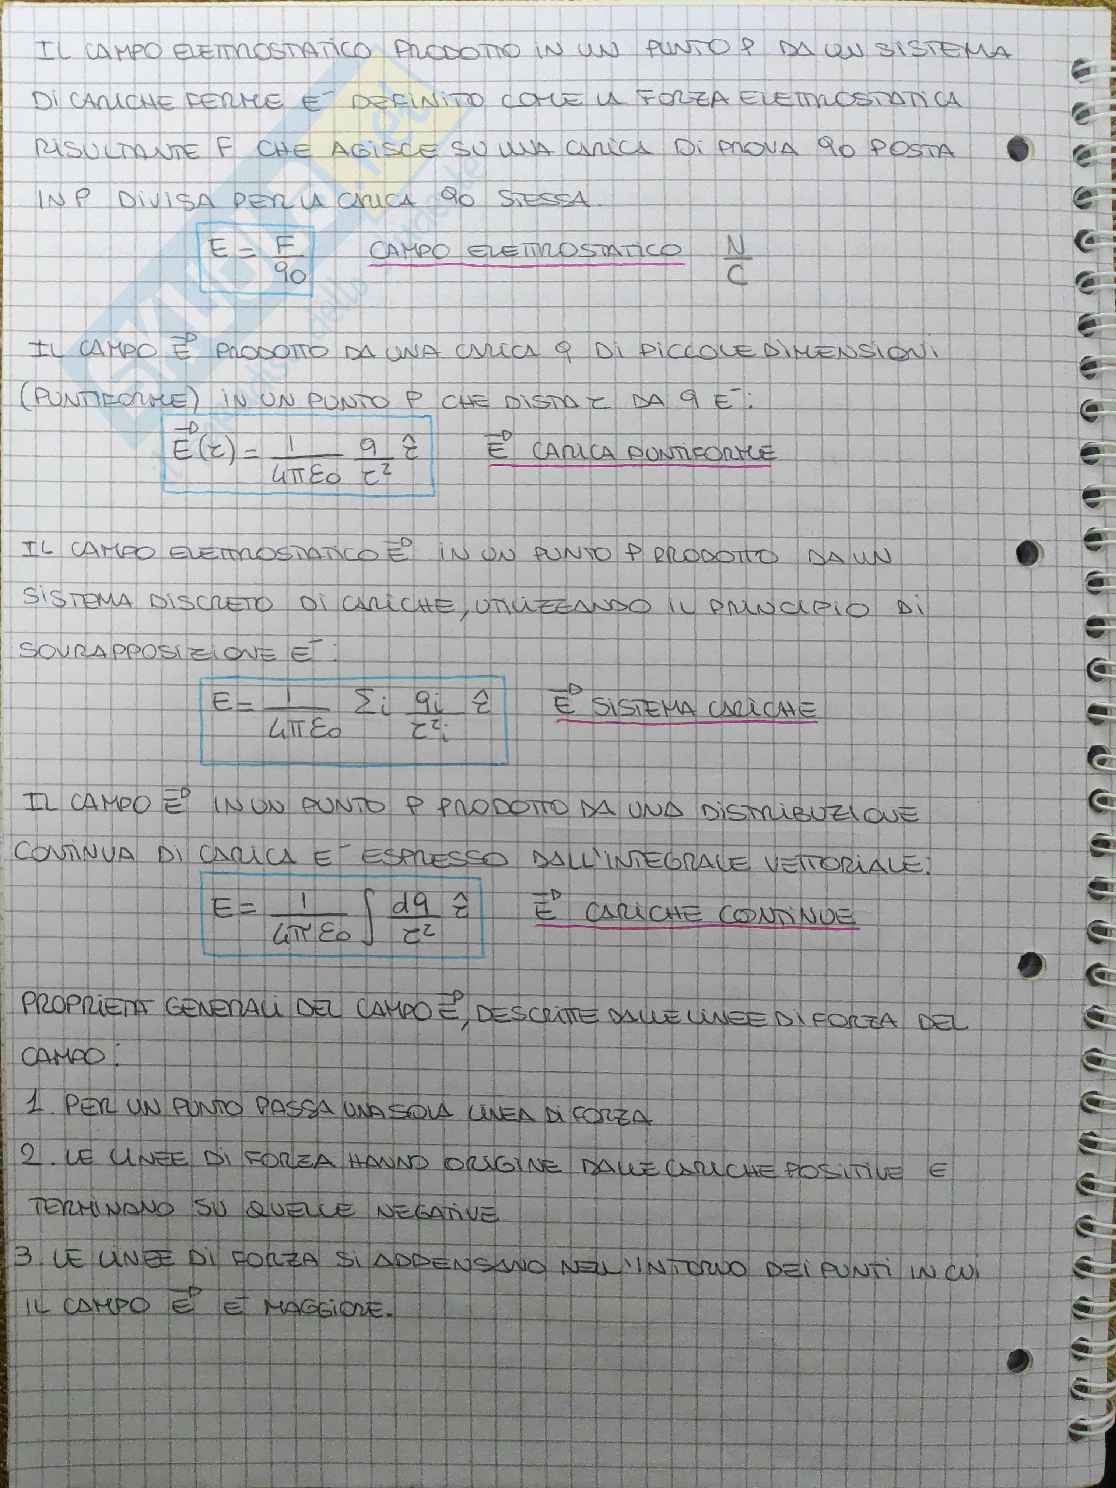 IL CAMPO ELETTROSTATICO PRODOTTO IN UN PUNTO P DA UN SISTEMA
DI CARICHE FERME E' DEFINITO COME LA FORZA ELETTROSTATICA
RISULTANTE F CHE AGISCE SU UNA CARICA DI PROVA q0 POSTA
IN P DIVISA PER LA CARICA q0 STESSA.
E = F/q0 CAMPO ELETTROSTATICO N/C
IL CAMPO E⃗ PRODOTTO DA UNA CARICA q DI PICCOLE DIMENSIONI
(PUNTIFORME) IN UN PUNTO P CHE DISTA r DA q E':
E⃗(r) = 1/4πε0 q/r² r̂ E⃗ CARICA PUNTIFORME
IL CAMPO ELETTROSTATICO E⃗ IN UN PUNTO P PRODOTTO DA UN
SISTEMA DISCRETO DI CARICHE, UTILIZZANDO IL PRINCIPIO DI
SOVRAPPOSIZIONE E':
E = 1/4πε0 Σi qi/r²i r̂ E⃗ SISTEMA CARICHE
IL CAMPO E⃗ IN UN PUNTO P PRODOTTO DA UNA DISTRIBUZIONE
CONTINUA DI CARICA E' ESPRESSO DALL'INTEGRALE VETTORIALE:
E = 1/4πε0 ∫ dq/r² r̂ E⃗ CARICHE CONTINUE
PROPRIETA' GENERALI DEL CAMPO E⃗, DESCRITTE DALLE LINEE DI FORZA DEL
CAMPO:
1. PER UN PUNTO PASSA UNA SOLA LINEA DI FORZA
2. LE LINEE DI FORZA HANNO ORIGINE DALLE CARICHE POSITIVE E
TERMINANO SU QUELLE NEGATIVE
3. LE LINEE DI FORZA SI ADDENSANO NELL'INTORNO DEI PUNTI IN CUI
IL CAMPO E⃗ E' MAGGIORE.